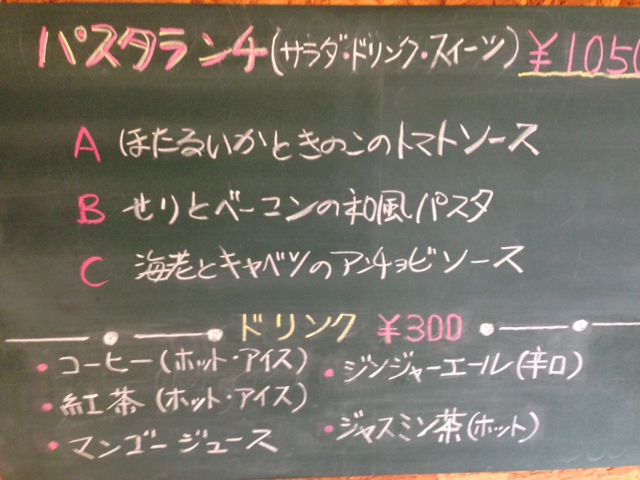 パスタランチ(サラダ・ドリンク・スイーツ) ¥1050
A ほたるいかときのこのトマトソース
B せりとベーコンの和風パスタ
C 海老とキャベツのアンチョビソース
ドリンク ¥300
・コーヒー(ホット・アイス)
・紅茶(ホット・アイス)
・マンゴージュース
・ジンジャーエール(辛口)
・ジャスミン茶(ホット)